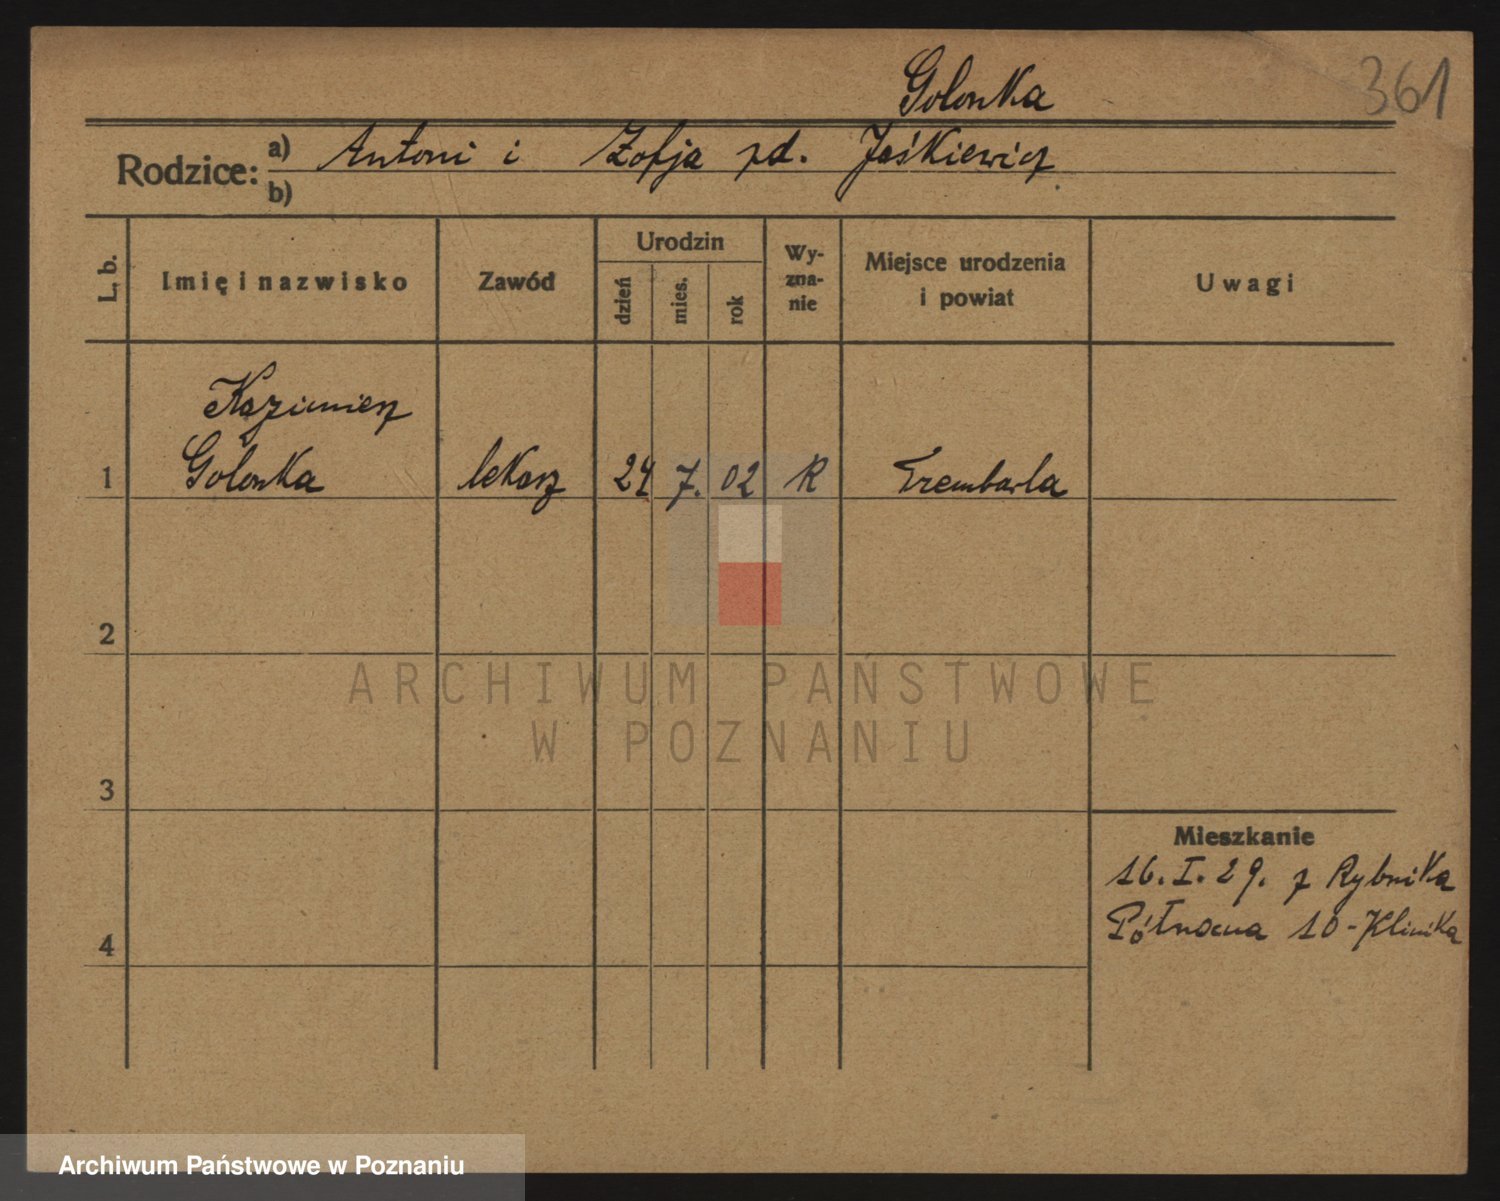 361
Golonka
Rodzice: a) Antoni i Zofja zd. Jaśkiewicz
b)
L. b. Imię i nazwisko Zawód Urodzin dzień mies. rok Wy-zna-nie Miejsce urodzenia i powiat Uwagi
Kazimierz
1 Golonka lekarz 24 7. 02 R Trembowla
2
ARCHIWUM PAŃSTWOWE
W POZNANIU
3
Mieszkanie
16. I. 29. z Rybnika
Północna 10 - Klinika
4
Archiwum Państwowe w Poznaniu